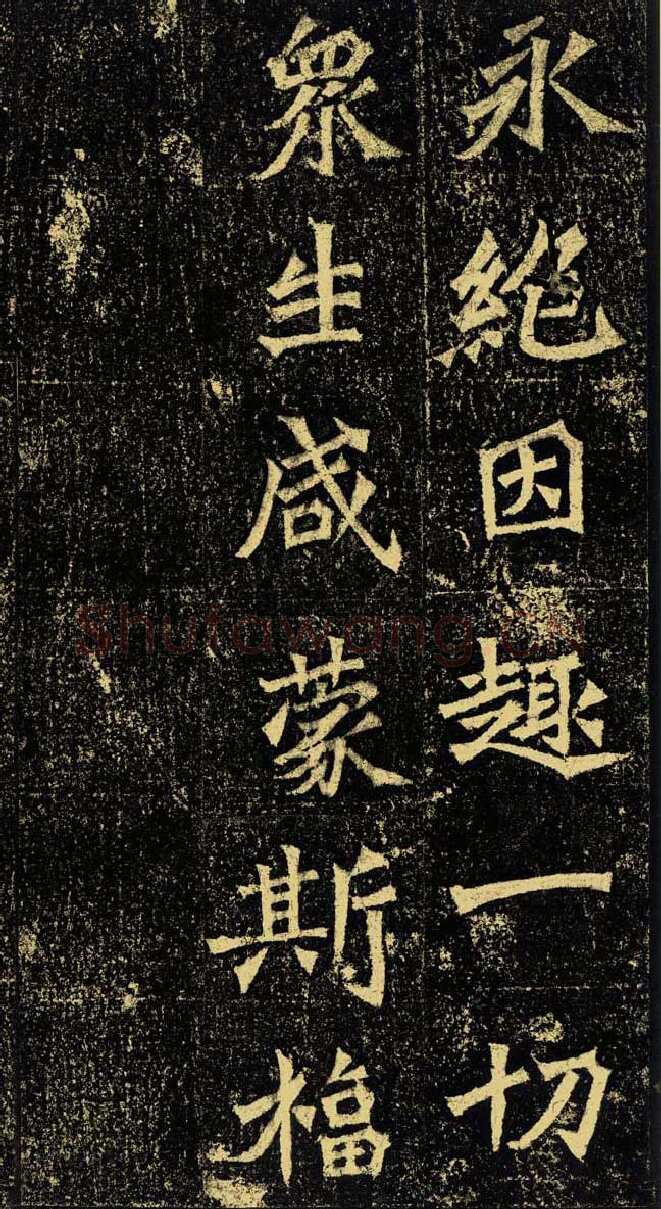 永絶因趣一切
眾生咸蒙斯福
Shufawang.CN